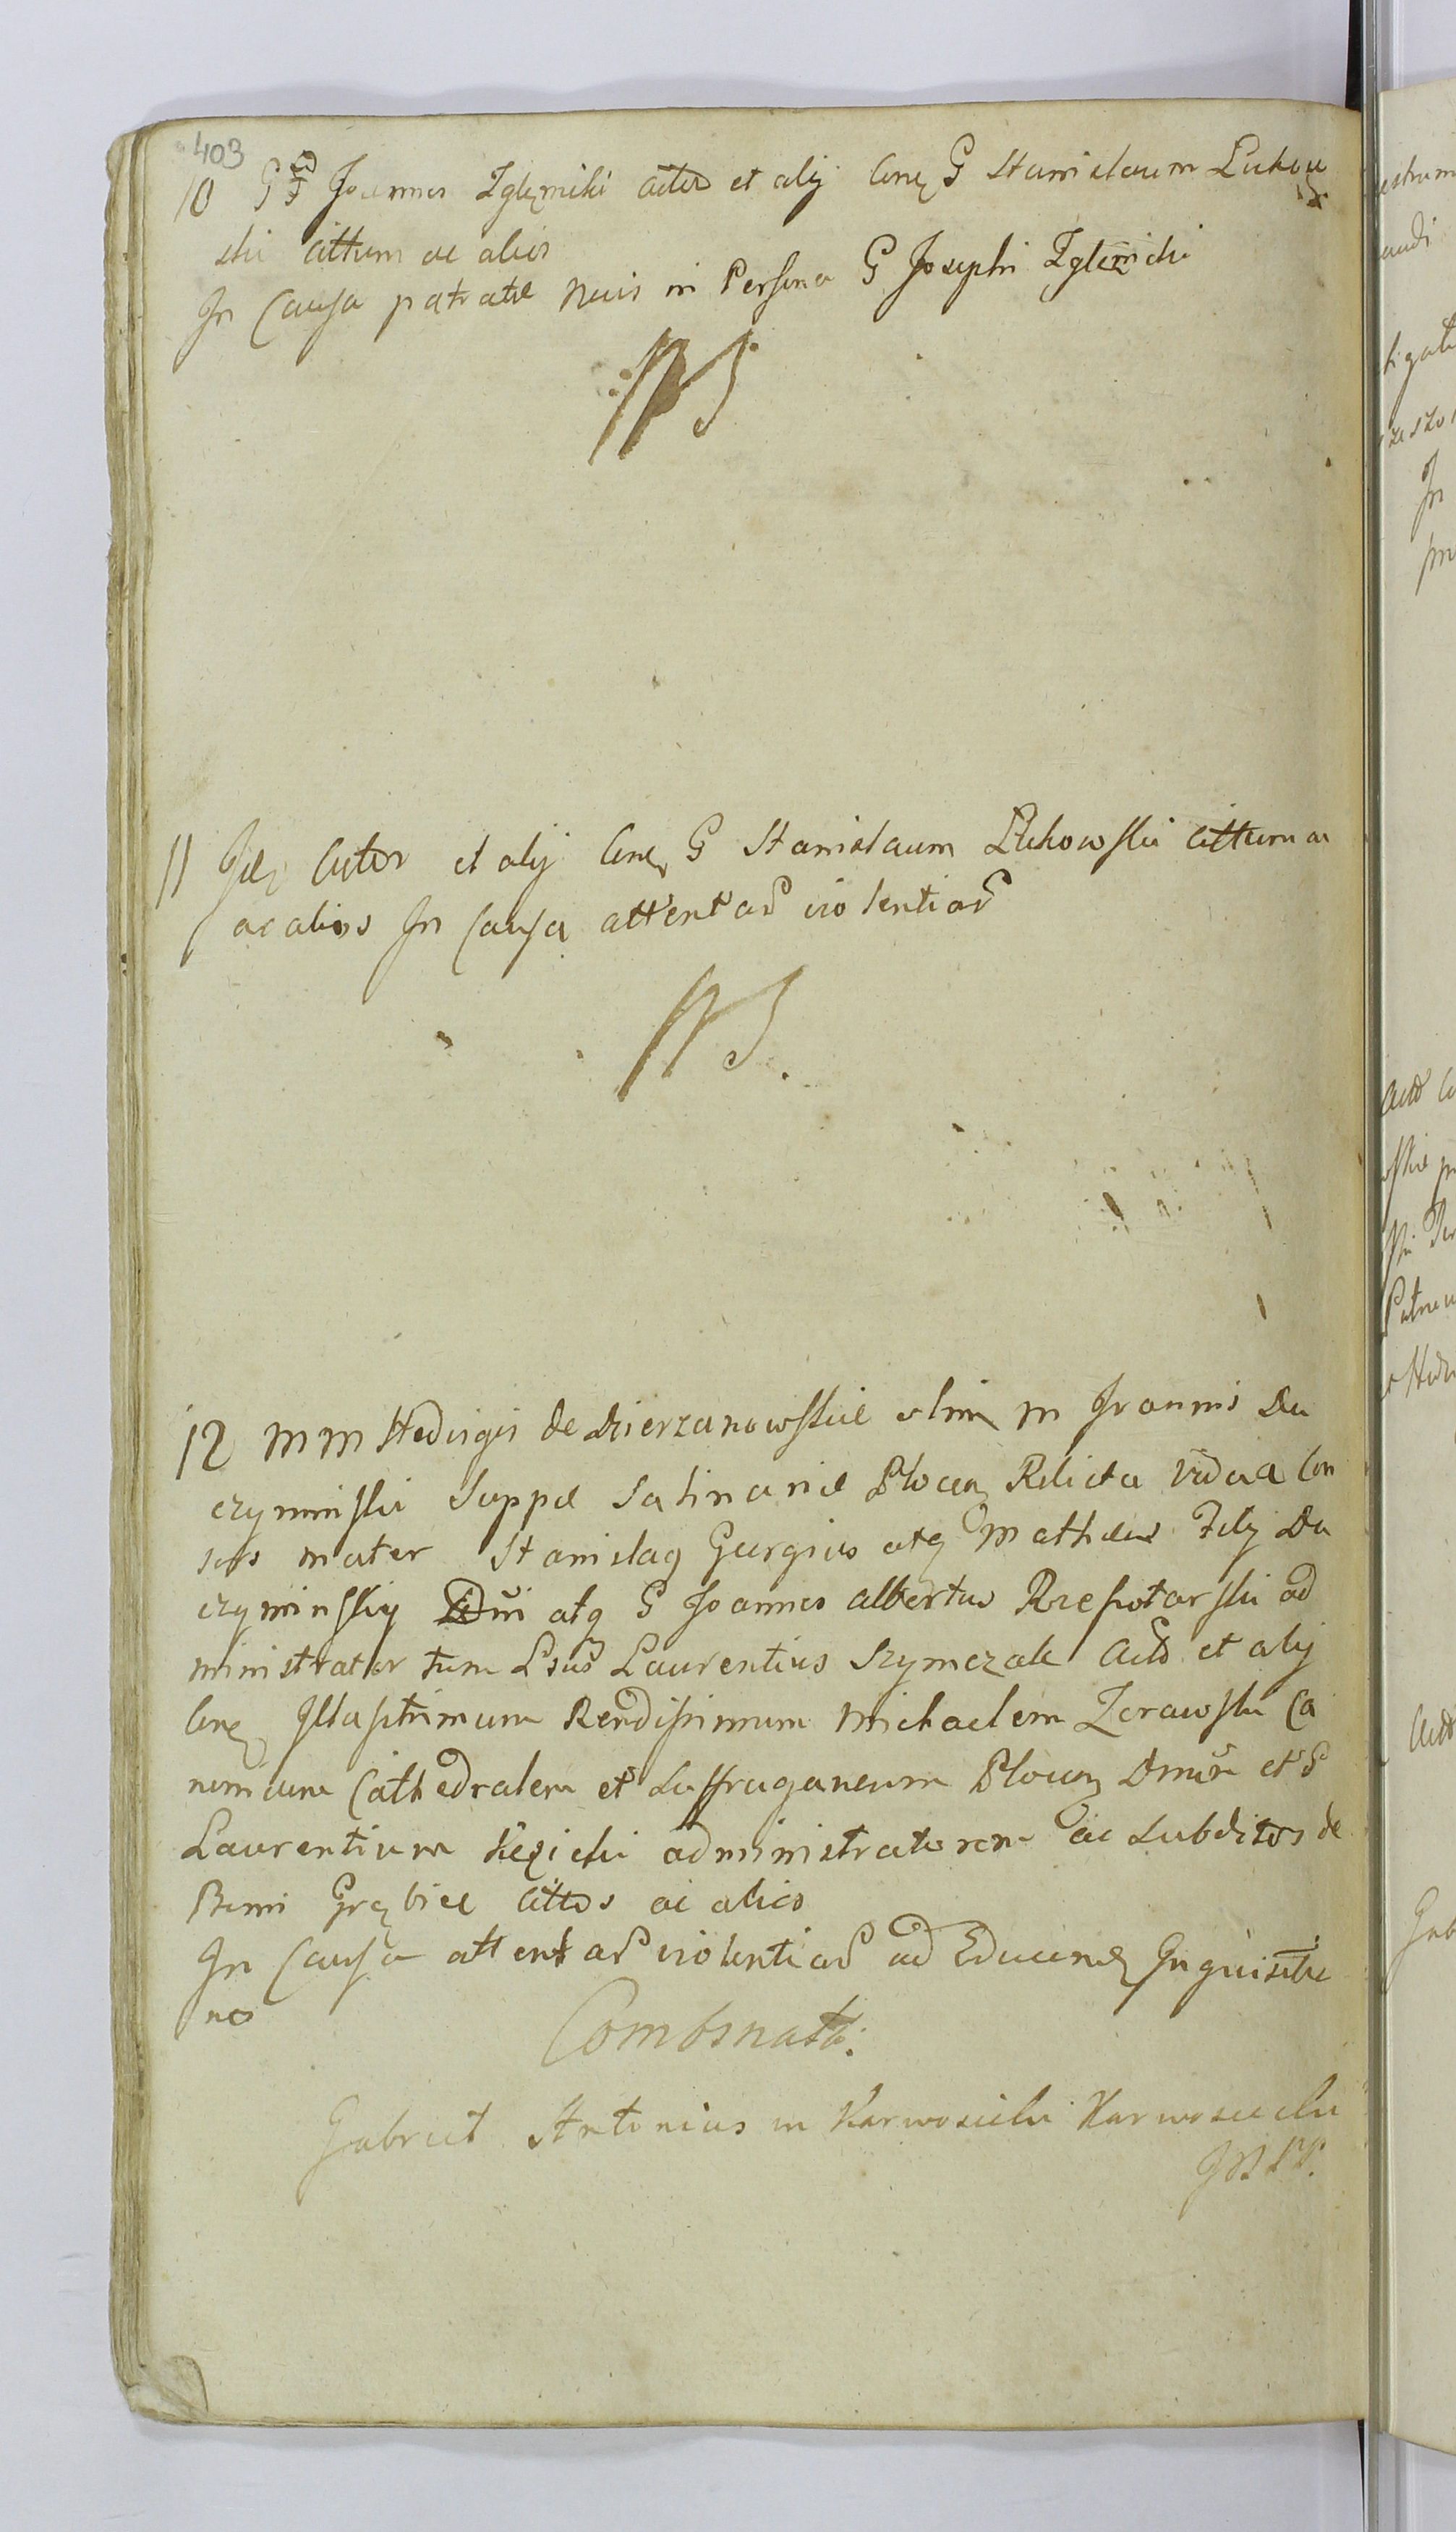 403
10 G Joannes Zglenicki Actor et alij Cone G Stanislaum Lukow
ski Cittum ac alios
In Causa patratae Necis in Persona G Josephi Zglenicki
11 Idem Actor et alij Cone G Stanislaum Lukowski Cittum ac
ac alios In Causa attentar violentiar
12 M M Hedvigis de Dzierzanowskie olim M Joannis Du
czyminski Suppae Satinariae Plocen Relicta Vidua Con
sors mater Stanislaq Georgius atq Mathaeus Filij Du
czyminskiy atq G Joannes Albertus Rzeszotarski ad
ministrator tum Laurentius Szymczak Actor et alij
Cone Illustrimum Rendissimum Michaelem Zorawski Ca
nonicum Cathedralem et Suffraganeum Plocen Dnum et G
Laurentium Kezicki administratorem ac Subditos de
Boni Grębice Cittos ac alios
In Causa attentar violentiar ad Educend Inquisitio
nes
Combinata.
Gabriel Antonius in Karwosieki Karwosiecki